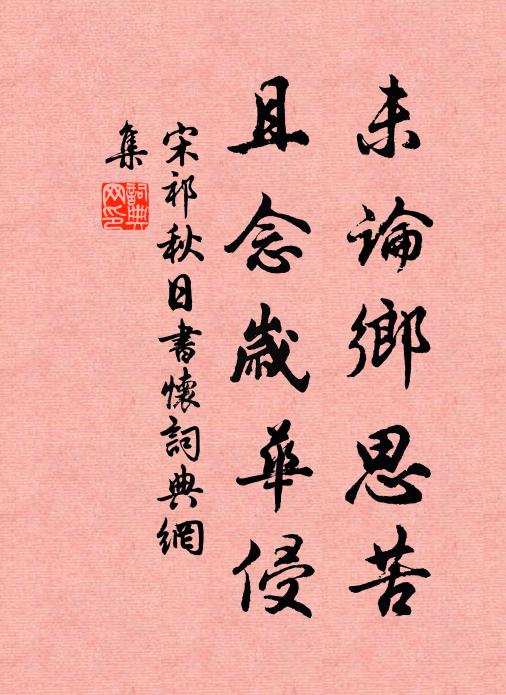 未論鄉思苦
且念歲華侵
宋祁秋日書懷詞典網
集
詞典
网印